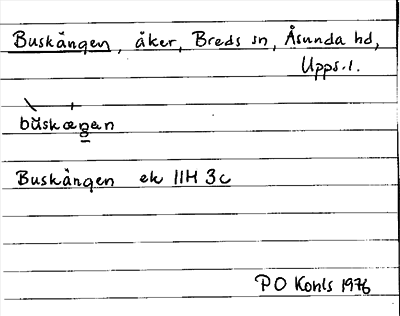 Buskängen, åker, Breds sn, Åsunda hd,
Upps. l.
Buskängen ek 11H 3c
PO Kohls 1976